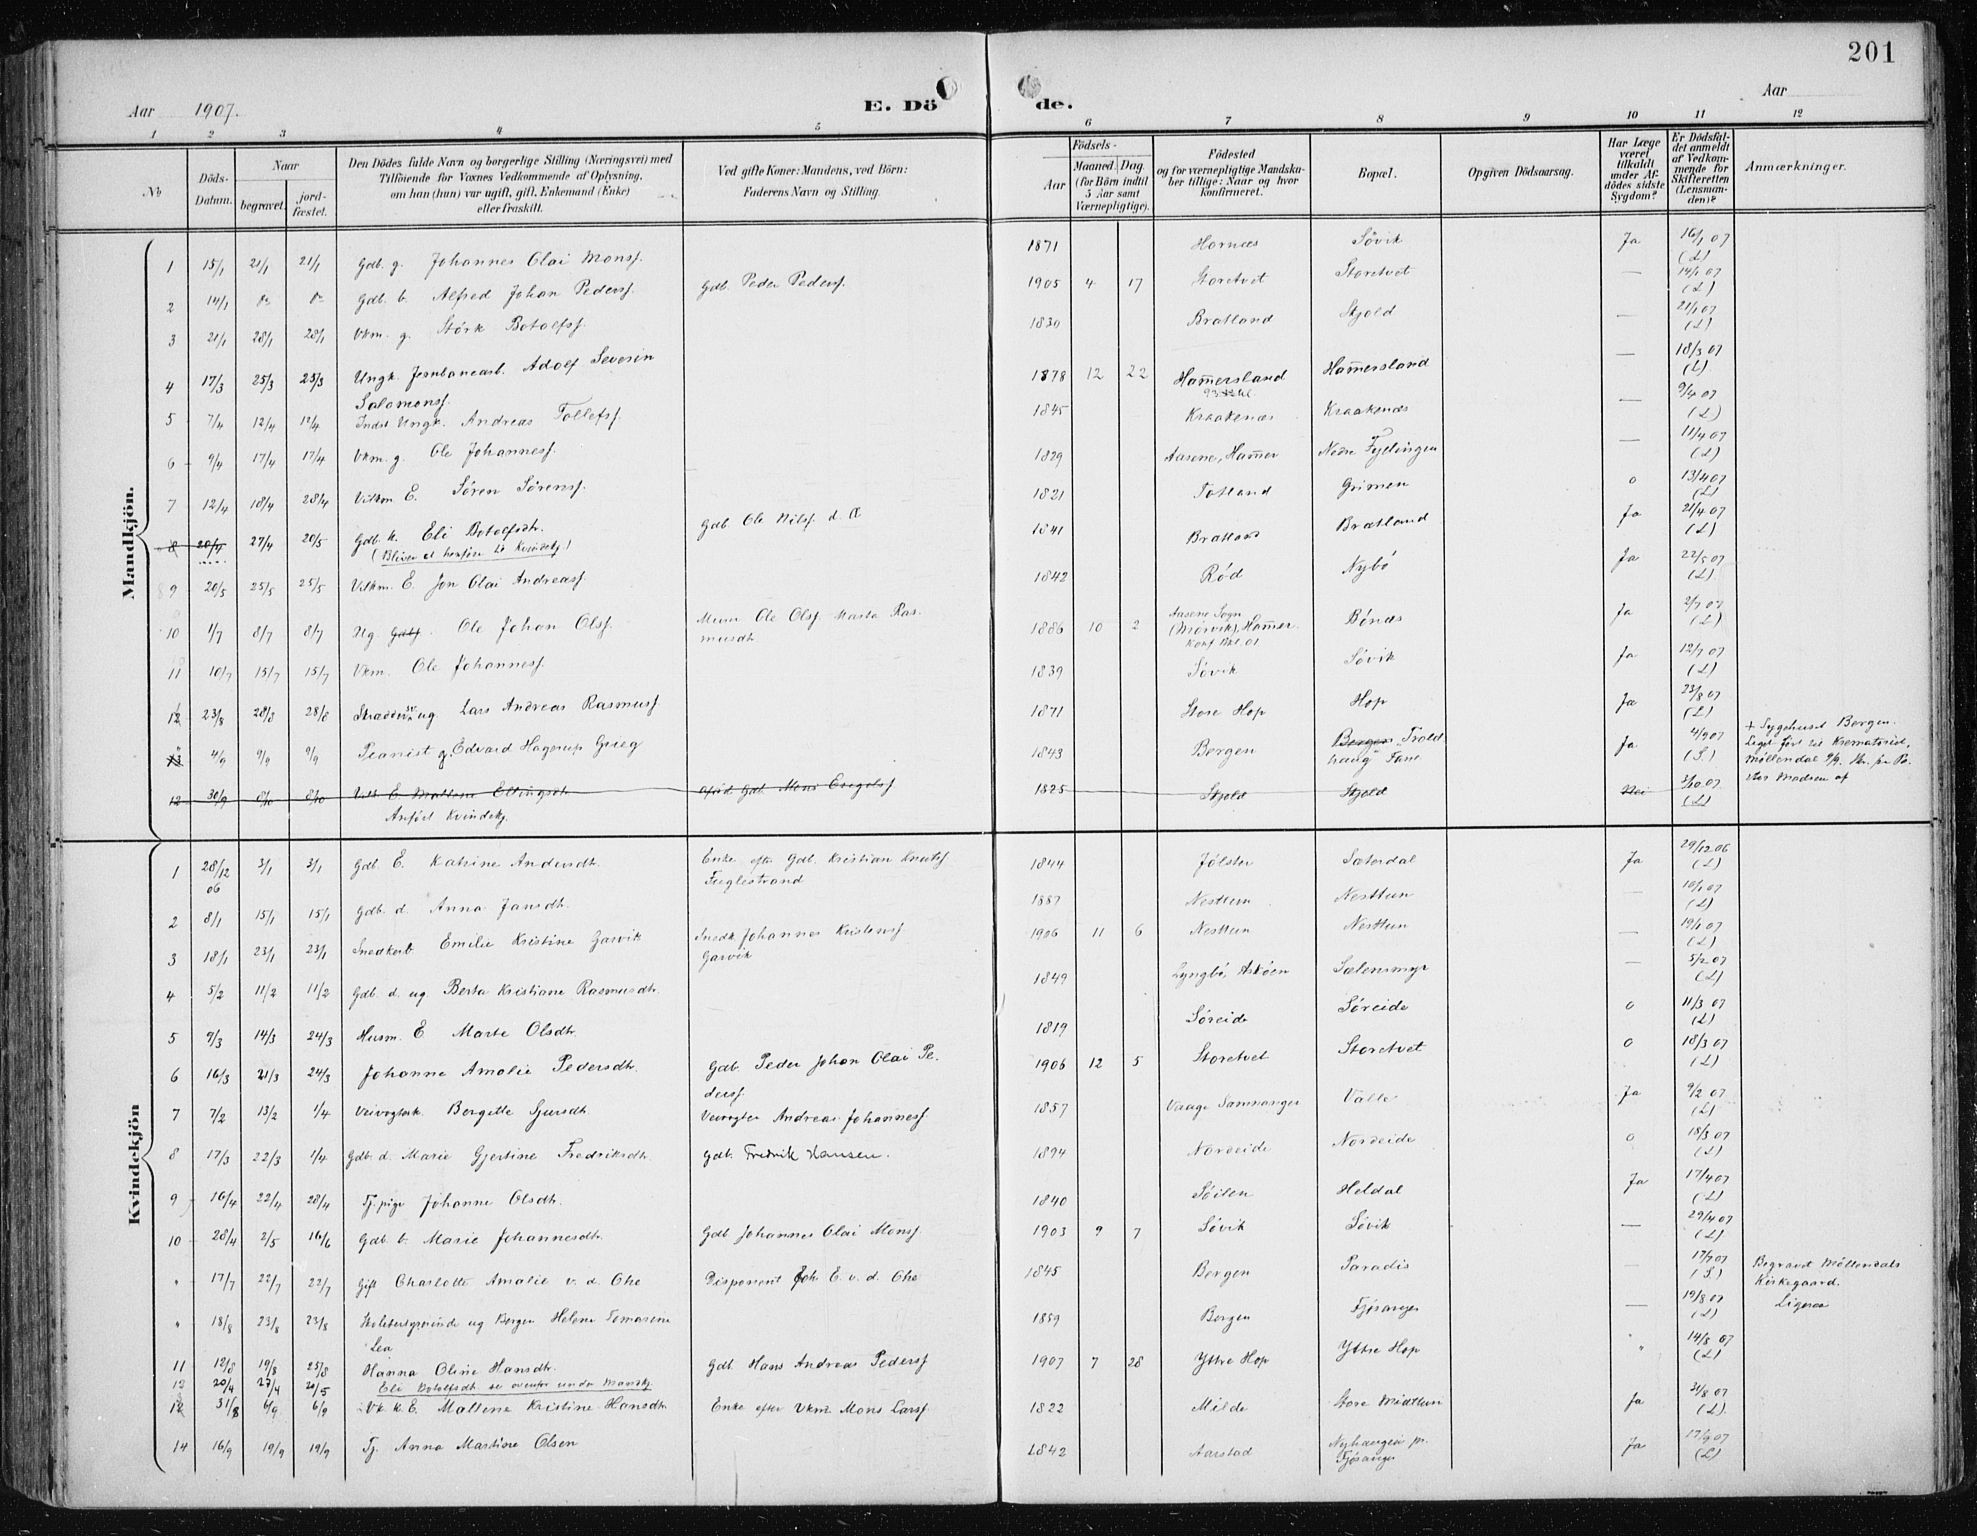 201
Aar 1907. E. Dö de. Aar
1 2 3 4 5 6 7 8 9 10 11 12
No
Döds-Datum.
Naar
begravet. jord-fæstet.
Den Dödes fulde Navn og borgerlige Stilling (Næringsvei) med
Tilföiende for Voxnes Vedkommende af Oplysning,
om han (hun) var ugift, gift, Enkemand (Enke)
eller fraskilt.
Ved gifte Koner: Mandens, ved Börn:
Faderens Navn og Stilling.
Födsels-
Aar Maaned. Dag.
(for Börn indtil
5 Aar samt
Værnepligtige).
Födested
og for værnepligtige Mandska-
ber tillige: Naar og hvor
konfirmeret.
Bopæl.
Opgiven Dödsaarsag.
Har Læge
været
tilkaldt
under Af-
dödes sidste
Sygdom?
Er Dödsfal-
det anmeldt
af Vedkom-
mende for
Skifteretten
(Lensman-
den)?
Anmærkninger.
Mandkjön.
1 15/1 21/1 21/1 Gdb. g. Johannes Olai Monsf. 1871 Hornæs Søvik Ja 16/1 07 (L)
2 14/1 do do Gdb. b. Alfred Johan Pedersf. Gdb. Peder Pedersf. 1905 4 17 Storetvet Storetvet — 14/1 07 (L)
3 21/1 28/1 28/1 Vkm. g. Størk Botolfsf. 1830 Bratland Skjold — 21/1 07 (L)
4 17/3 25/3 25/3 Ungk. Jernbanearb. Adolf Severin Salomonsf. 1878 12 22 Ham̄ersland Ham̄ersland — 18/3 07 (L)
5 7/4 12/4 12/4 Indst Ungk. Andreas Tollefsf. 1845 Kraakenæs Kraakenæs — 9/4 07 (L)
6 9/4 17/4 17/4 Vkm. g. Ole Johannesf. 1829 Aasene, Ham̄er Nedre Fyllingen — 11/4 07 (L)
7 12/4 18/4 28/4 Vilkm. E. Søren Sørensf. 1821 Totland Grimen o 13/4 07 (L)
8 20/4 27/4 20/5 Gdb. k. Eli Botolfsdtr. Gdb Ole Nilsf. d. Æ 1841 Bratland Bratland Ja 21/4 07 (L)
(Bliver at henføre til Kvindekj.)
9 20/5 25/5 25/5 Vilkm. E. Jon Olai Andreasf. 1842 Rød Nybø Ja 22/5 07 (L)
10 1/7 8/7 8/7 Ug. Gdbf. Ole Johan Olsf. Murer Ole Olsf. Marta Ras-
musdtr. 1886 10 2 Aasene Sogn
(Mørvik), Ham̄er. Bønæs Ja 2/7 07 (L)
11 10/7 15/7 15/7 Vkm. Ole Johannesf. 1839 Søvik Søvik Ja 12/7 07 (L)
12 23/8 28/8 28/8 Skræddersv. ug. Lars Andreas Rasmusf. 1871 Store Hop Hop Ja 23/8 07 (L)
" 4/9 9/9 9/9 Pianist g. Edvard Hagerup Grieg 1843 Bergen Bergen Trold
haug Fane Ja 4/9 07 (S.) + Sygehuset Bergen.
Liget ført til Krematoriet,
Møllendal 9/9.
12 30/9 8/10 8/10 Vilk. E. Mallene Ellingsdtr. 1825 Skjold Skjold Nei 3/10 07 (L)
Anført Kvindekj.
Kvindekjön
1 28/12 06 3/1 3/1 Gdb. E. Katrine Andersdtr. Enke efter Gdb. Kristian Knutsf
Fuglestrand 1844 Jølster Sæterdal Ja 29/12 06 (L)
2 8/1 15/1 15/1 Gdb. d. Anna Jansdtr. 1887 Nesttun Nesttun — 10/1 07 (L)
3 18/1 23/1 23/1 Snedkerb. Emilie Kristine Garvik Snedk. Johannes Kristensf
Garvik 1906 11 6 Nesttun Nesttun — 19/1 07 (L)
4 5/2 11/2 11/2 Gdb. d. ug. Berta Kristiane Rasmusdtr. 1849 Lyngbø, Askøen Sælensmyr — 5/2 07 (L)
5 9/3 14/3 24/3 Husm. E Marte Olsdtr. 1819 Søreide Søreide o 11/3 07 (L)
6 16/3 21/3 24/3 Johanne Amalie Pedersdtr. Gdb. Peder Johan Olai Pe-
dersf. 1906 12 5 Storetvet Storetvet o 18/3 07 (L)
7 7/2 13/2 1/4 Veivogterk. Bergitte Sjursdtr. Veivogter Andreas Johannesf 1857 Vaage Samnanger Valle Ja 9/2 07 (L)
8 17/3 22/3 1/4 Gdb. d. Marie Gjertine Fredriksdtr. Gdb. Fredrik Hansen. 1894 Nordeide Nordeide o 18/3 07 (L)
9 16/4 22/4 28/4 Tj.pige Johanne Olsdtr. 1840 Søilen Heldal Ja 17/4 07 (L)
10 28/4 2/5 16/6 Gdb. b. Marie Johannesdtr. Gdb Johannes Olai Monsf. 1903 9 7 Søvik Søvik — 29/4 07 (L)
" 17/7 22/7 22/7 Gift Charlotte Amalie v. d. Ohe Disponent Joh. E. v. d. Ohe 1845 Bergen Paradis — 17/7 07 (S) Begravet Møllendals
Kirkegaard.
" 18/8 23/8 23/8 ug Berger Helene Tomasine
Lea 1859 Bergen Fjøsanger — 19/8 07 (L) Ligesaa
11 12/8 19/8 25/8 Hanna Oline Hansdtr. Gdb. Hans Andreas Pedersf 1907 7 28 Yttre Hop Yttre Hop " 14/8 07 (L)
12 20/4 27/4 20/5 Eli Botolfsdtr. se ovenfor under Mandkj.
12 31/8 6/9 6/9 Vk. k. E. Mallene Kristine Hansdtr Enke efter Vkm Mons Larsf. 1822 Milde Store Midttun Ja 31/8 07 (L)
14 16/9 19/9 19/9 Tj. Anna Martine Olsen 1842 Aarstad Nyhaugen pr.
Fjøsanger Ja 17/9 07 (L)